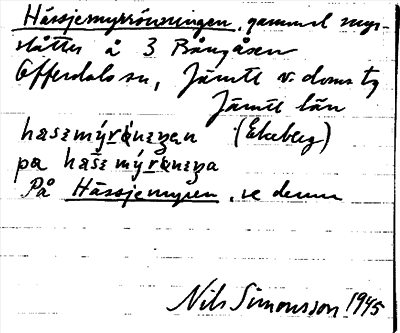 Hässjemyrrönningen, gammal myr-
slåtter å 3 Bångåsen
Offerdals sn, Jämtl v. doms tg
Jämtl län
haszmýránzan (Ekeberg)
pa haszmýránzna
På Hässjemyren, se denna
Nils Simonsson 1945